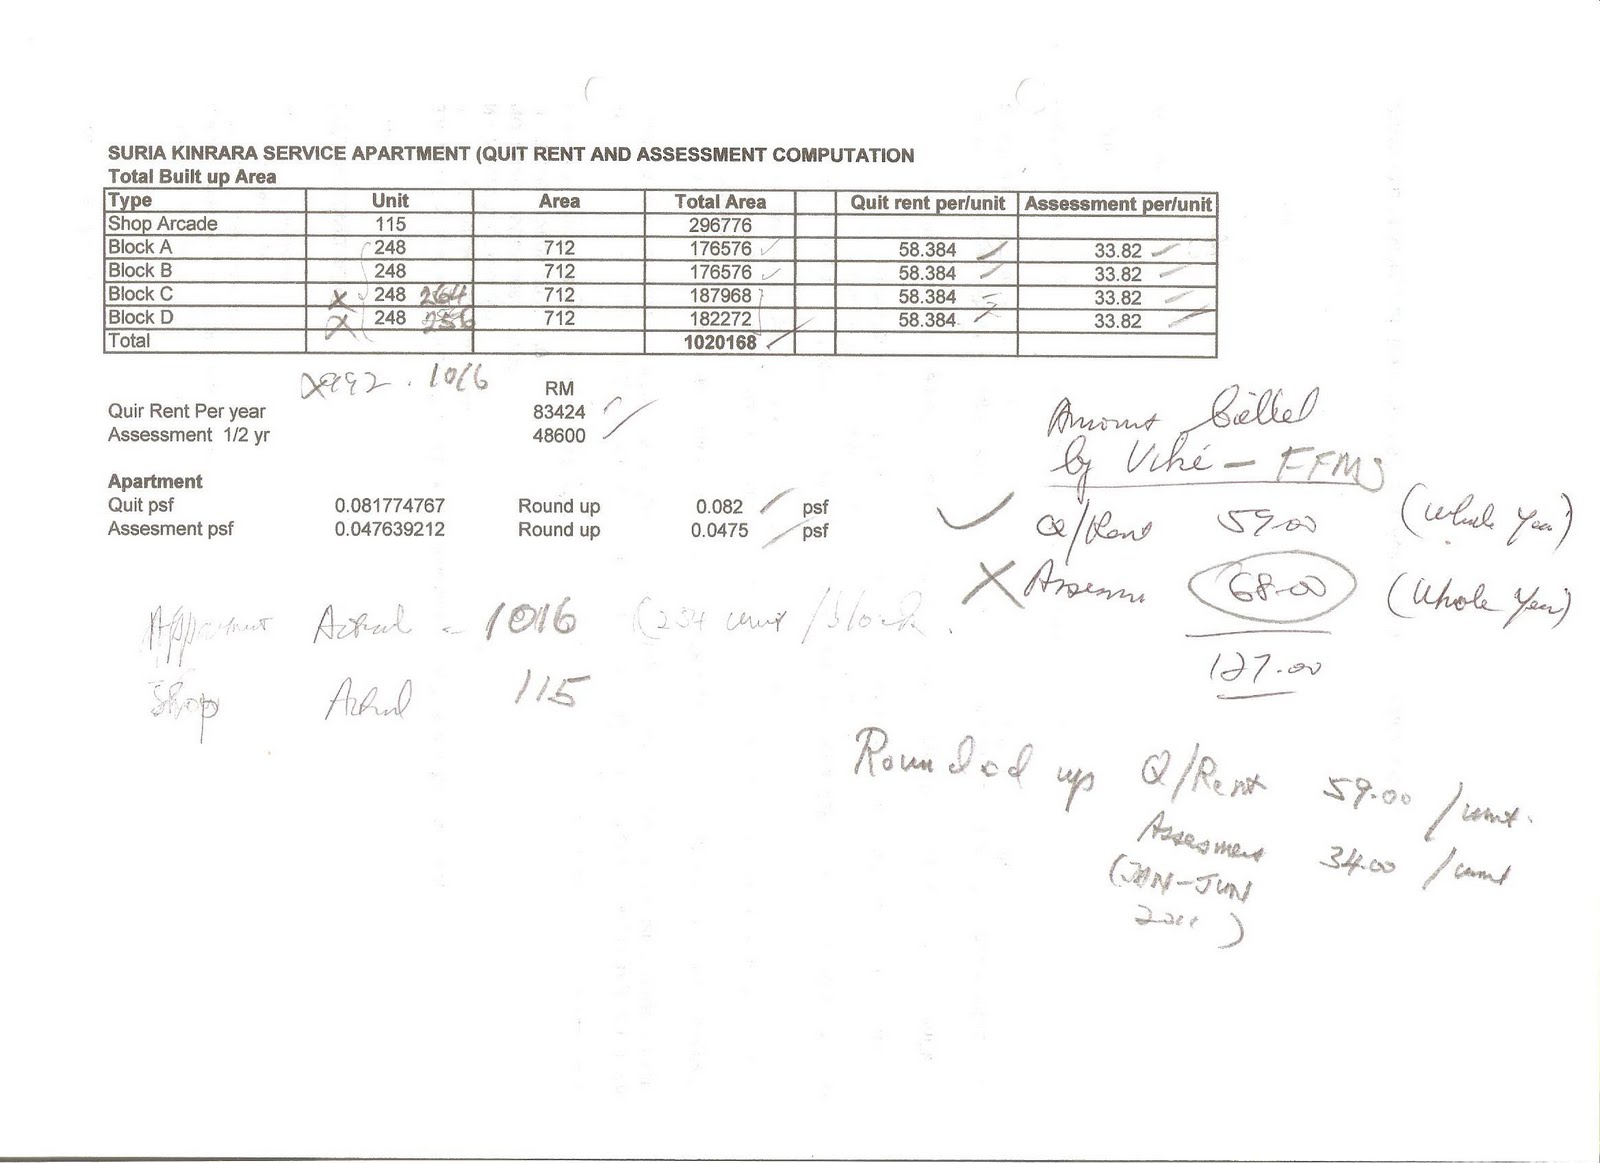 SURIA KINRARA SERVICE APARTMENT (QUIT RENT AND ASSESSMENT COMPUTATION
Total Built up Area
Type Unit Area Total Area Quit rent per/unit Assessment per/unit
Shop Arcade 115 296776
Block A 248 712 176576 58.384 33.82
Block B 248 712 176576 58.384 33.82
Block C x 248 264 712 187968 58.384 33.82
Block D x 248 256 712 182272 58.384 33.82
Total 1020168
x992 . 1016
RM
Quir Rent Per year 83424
Assessment 1/2 yr 48600
Amount billed
by Viké - FFMS
Apartment
Quit psf 0.081774767 Round up 0.082 psf
Assesment psf 0.047639212 Round up 0.0475 psf
Q/Rent 59.00 (Whole Year)
Assessm 68.00 (Whole Year)
127.00
Appartment Actual - 1016 (254 unit /block.
Shop Actual 115
Rounded up Q/Rent 59.00 /unit.
Assesment 34.00 /unit
(JAN-JUN
2011)